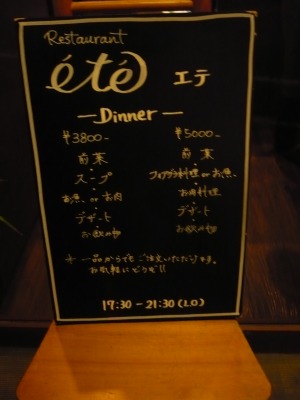 Restaurant
été エテ
— Dinner —
¥3800- ¥5000-
前菜 前菜
・ ・
スープ フォアグラ料理 or お魚
・ ・
お魚 or お肉 お肉料理
・ ・
デザート デザート
・ ・
お飲み物 お飲み物
一品からでもご注文いただけます。
お気軽にどうぞ!!
17:30 - 21:30 (L.O)